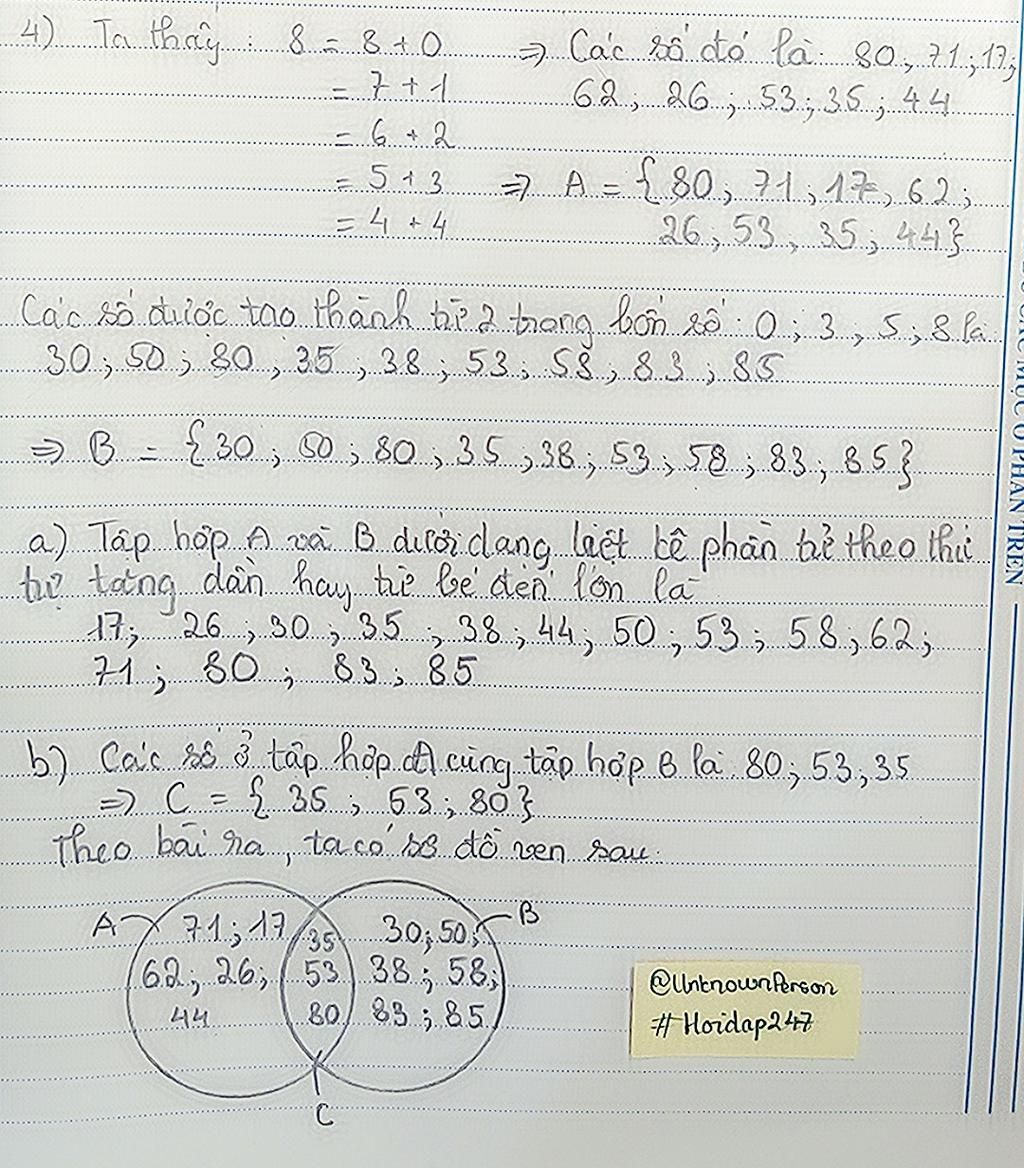 4) Ta thấy : 8 = 8 + 0 => Các số đó là: 80, 71; 17;
= 7 + 1 62; 26; 53; 35; 44
= 6 + 2
= 5 + 3 => A = {80; 71; 17; 62;
= 4 + 4 26; 53; 35; 44}
Các số được tạo thành từ 2 trong bốn số : 0; 3; 5; 8 là
30; 50; 80; 35; 38; 53; 58; 83; 85
=> B = {30; 50; 80; 35; 38; 53; 58; 83; 85}
a) Tập hợp A và B dưới dạng liệt kê phần tử theo thứ
tự tăng dần hay từ bé đến lớn là
17; 26; 30; 35; 38; 44; 50; 53; 58; 62;
71; 80; 83; 85
b) Các số ở tập hợp A cùng tập hợp B là: 80; 53; 35
=> C = {35; 53; 80}
Theo bài ra, ta có sơ đồ ven sau:
A 71; 17 35 30; 50; B
62; 26; 53 38; 58;
44 80 83; 85
C
@UnknownPerson
# Hoidap247
PHẦN TRÊN